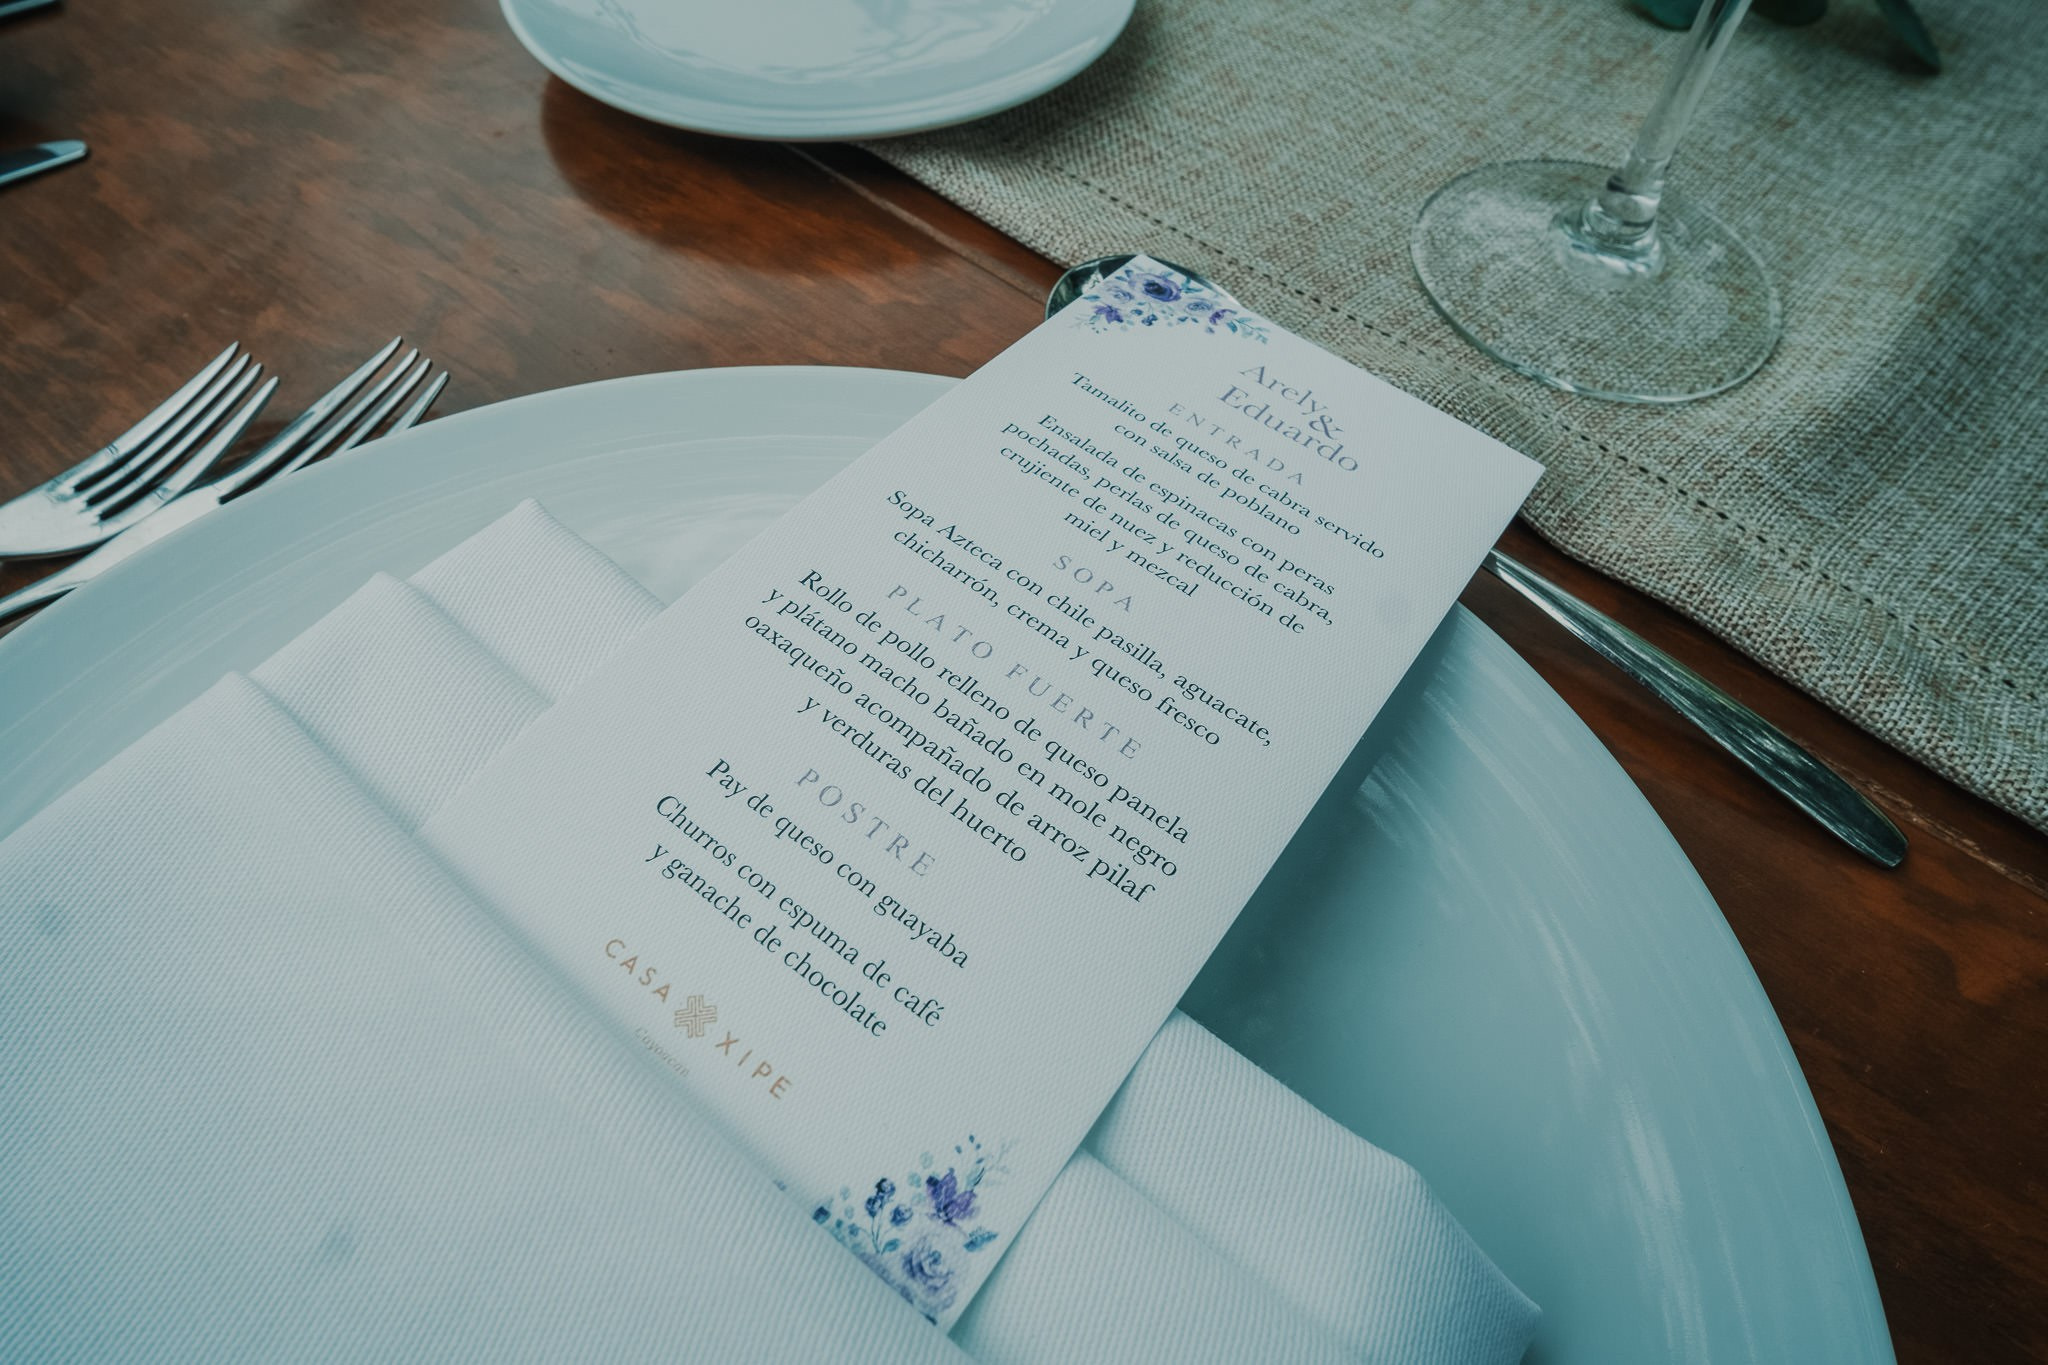 Arely&
Eduardo
ENTRADA
Tamalito de queso de cabra servido
con salsa de poblano
Ensalada de espinacas con peras
pochadas, perlas de queso de cabra,
crujiente de nuez y reducción de
miel y mezcal
SOPA
Sopa Azteca con chile pasilla, aguacate,
chicharrón, crema y queso fresco
PLATO FUERTE
Rollo de pollo relleno de queso panela
y plátano macho bañado en mole negro
oaxaqueño acompañado de arroz pilaf
y verduras del huerto
POSTRE
Pay de queso con guayaba
Churros con espuma de café
y ganache de chocolate
CASA XIPE
Coyoacan